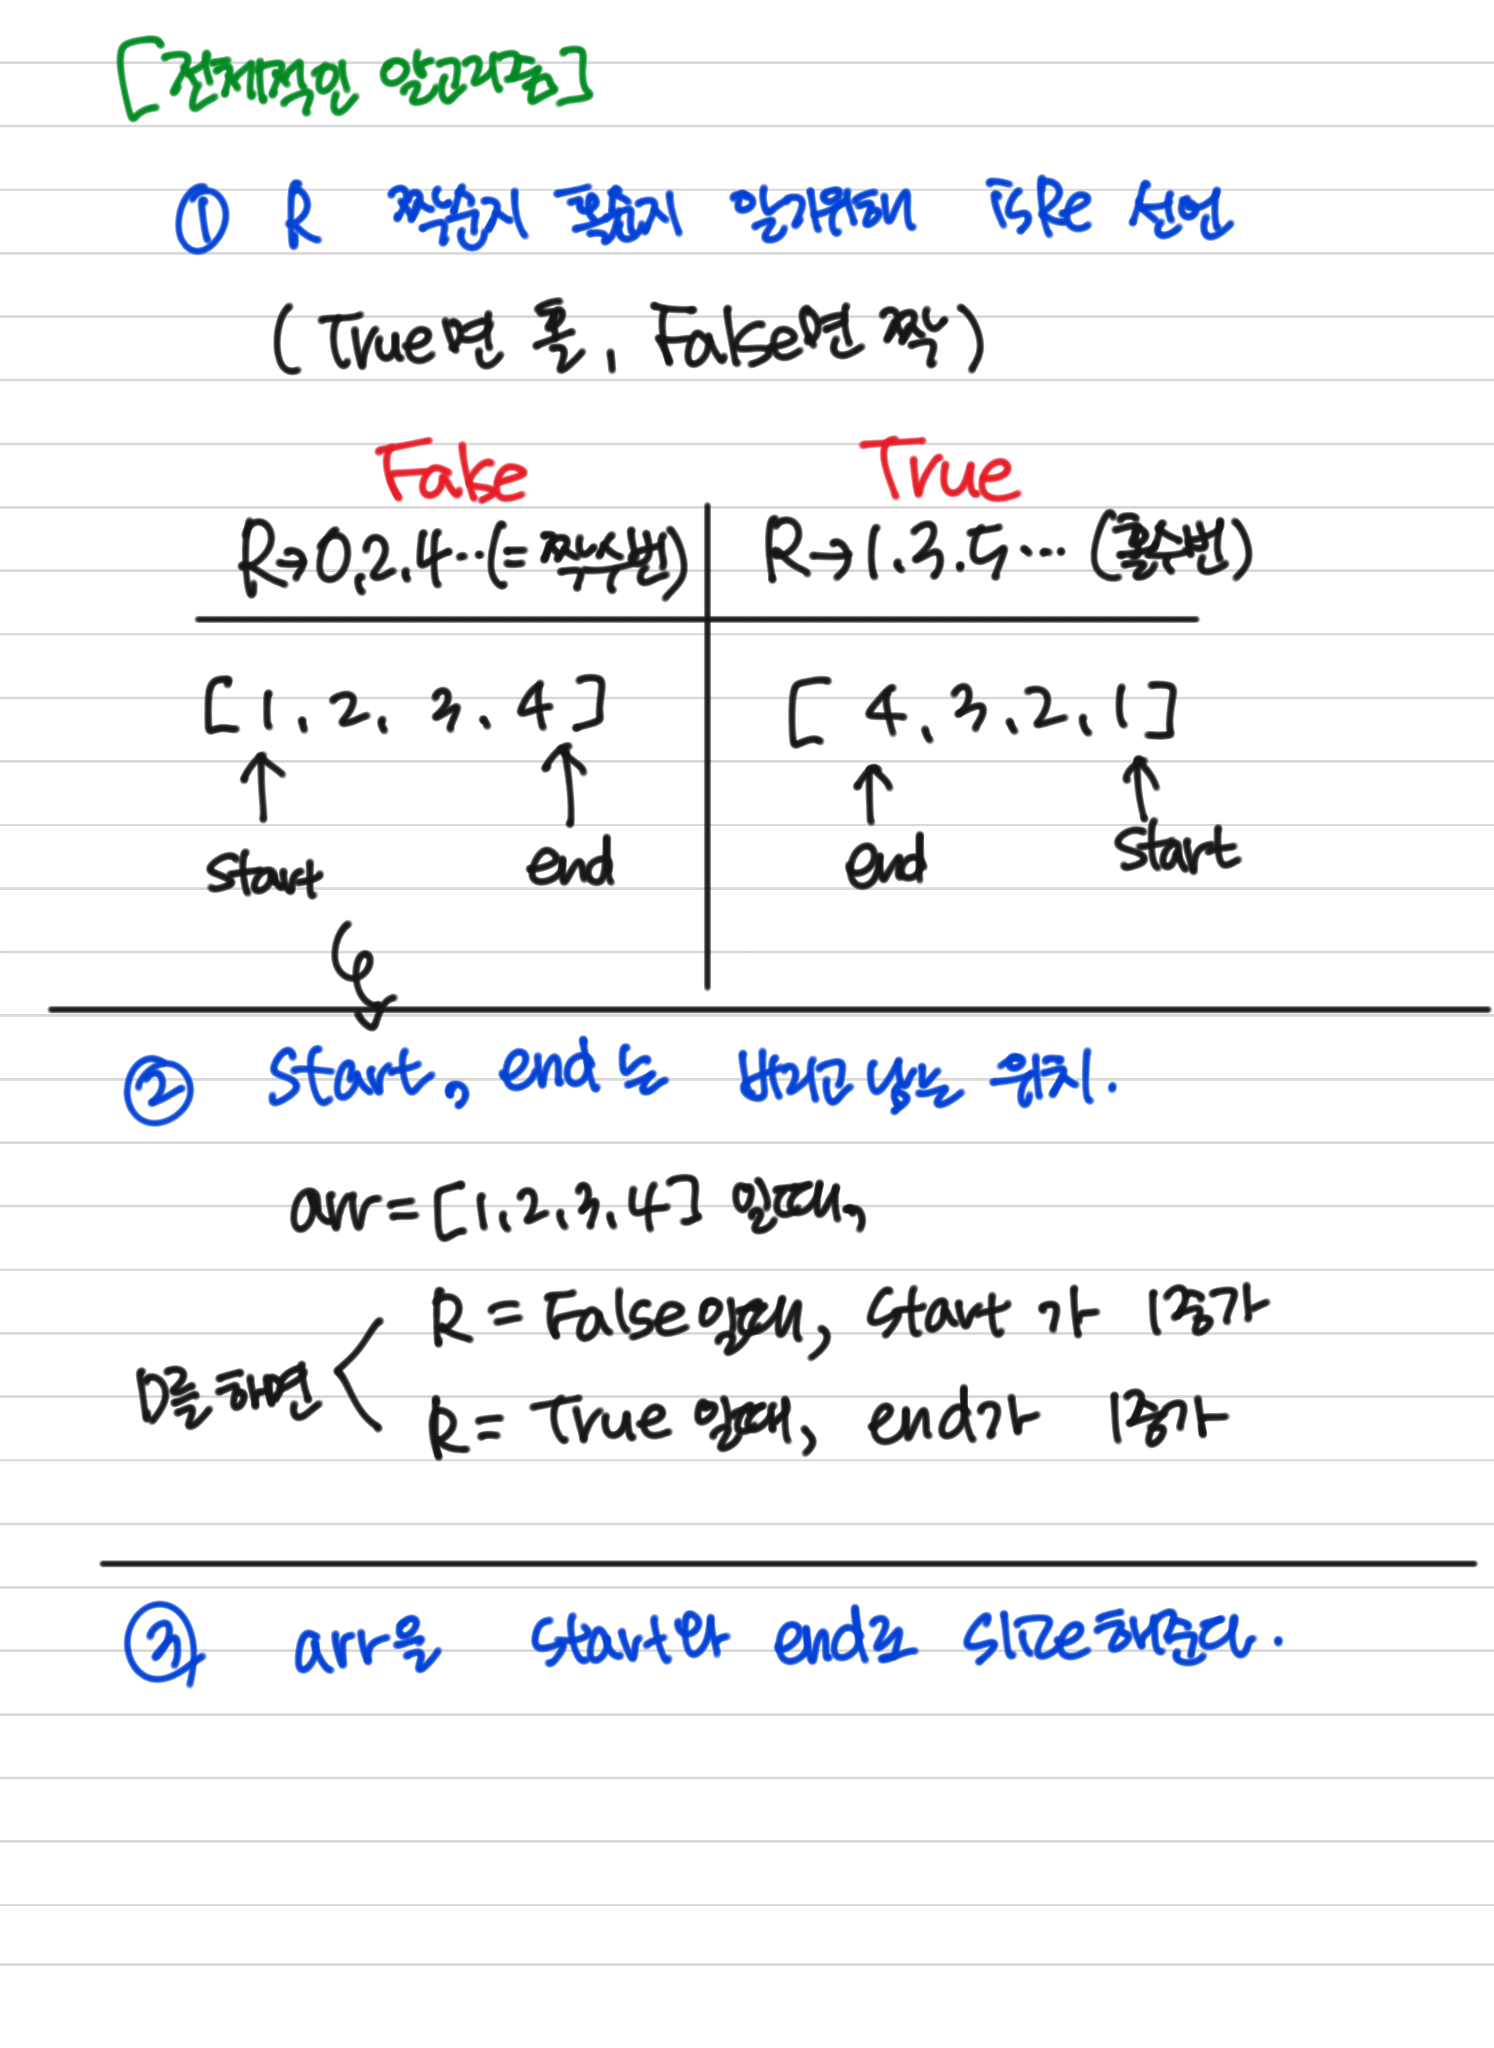 [전체적인 알고리즘]
① R 짝순지 홀순지 알기위해 isRe 선언
(True면 홀, False면 짝)
False True
R→0.2.4...(=짝수번) R→1.3.5... (홀수번)
[1, 2, 3, 4] [4, 3, 2, 1]
start end end start
② start, end는 버리고 남는 위치.
arr=[1,2,3,4] 일때,
D를 하면
R = False일때, start가 1증가
R = True일때, end가 1증가
③ arr을 start와 end로 slice해준다.